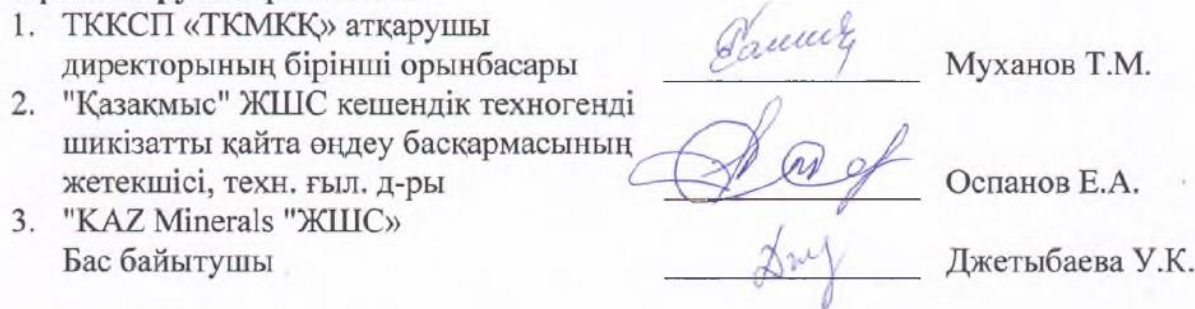 1. ТККСП «ТКМКҚ» атқарушы
директорының бірінші орынбасары Муханов Т.М.
2. "Қазақмыс" ЖШС кешендік техногенді
шикізатты қайта өңдеу басқармасының
жетекшісі, техн. ғыл. д-ры Оспанов Е.А.
3. "KAZ Minerals "ЖШС»
Бас байытушы Джетыбаева У.К.